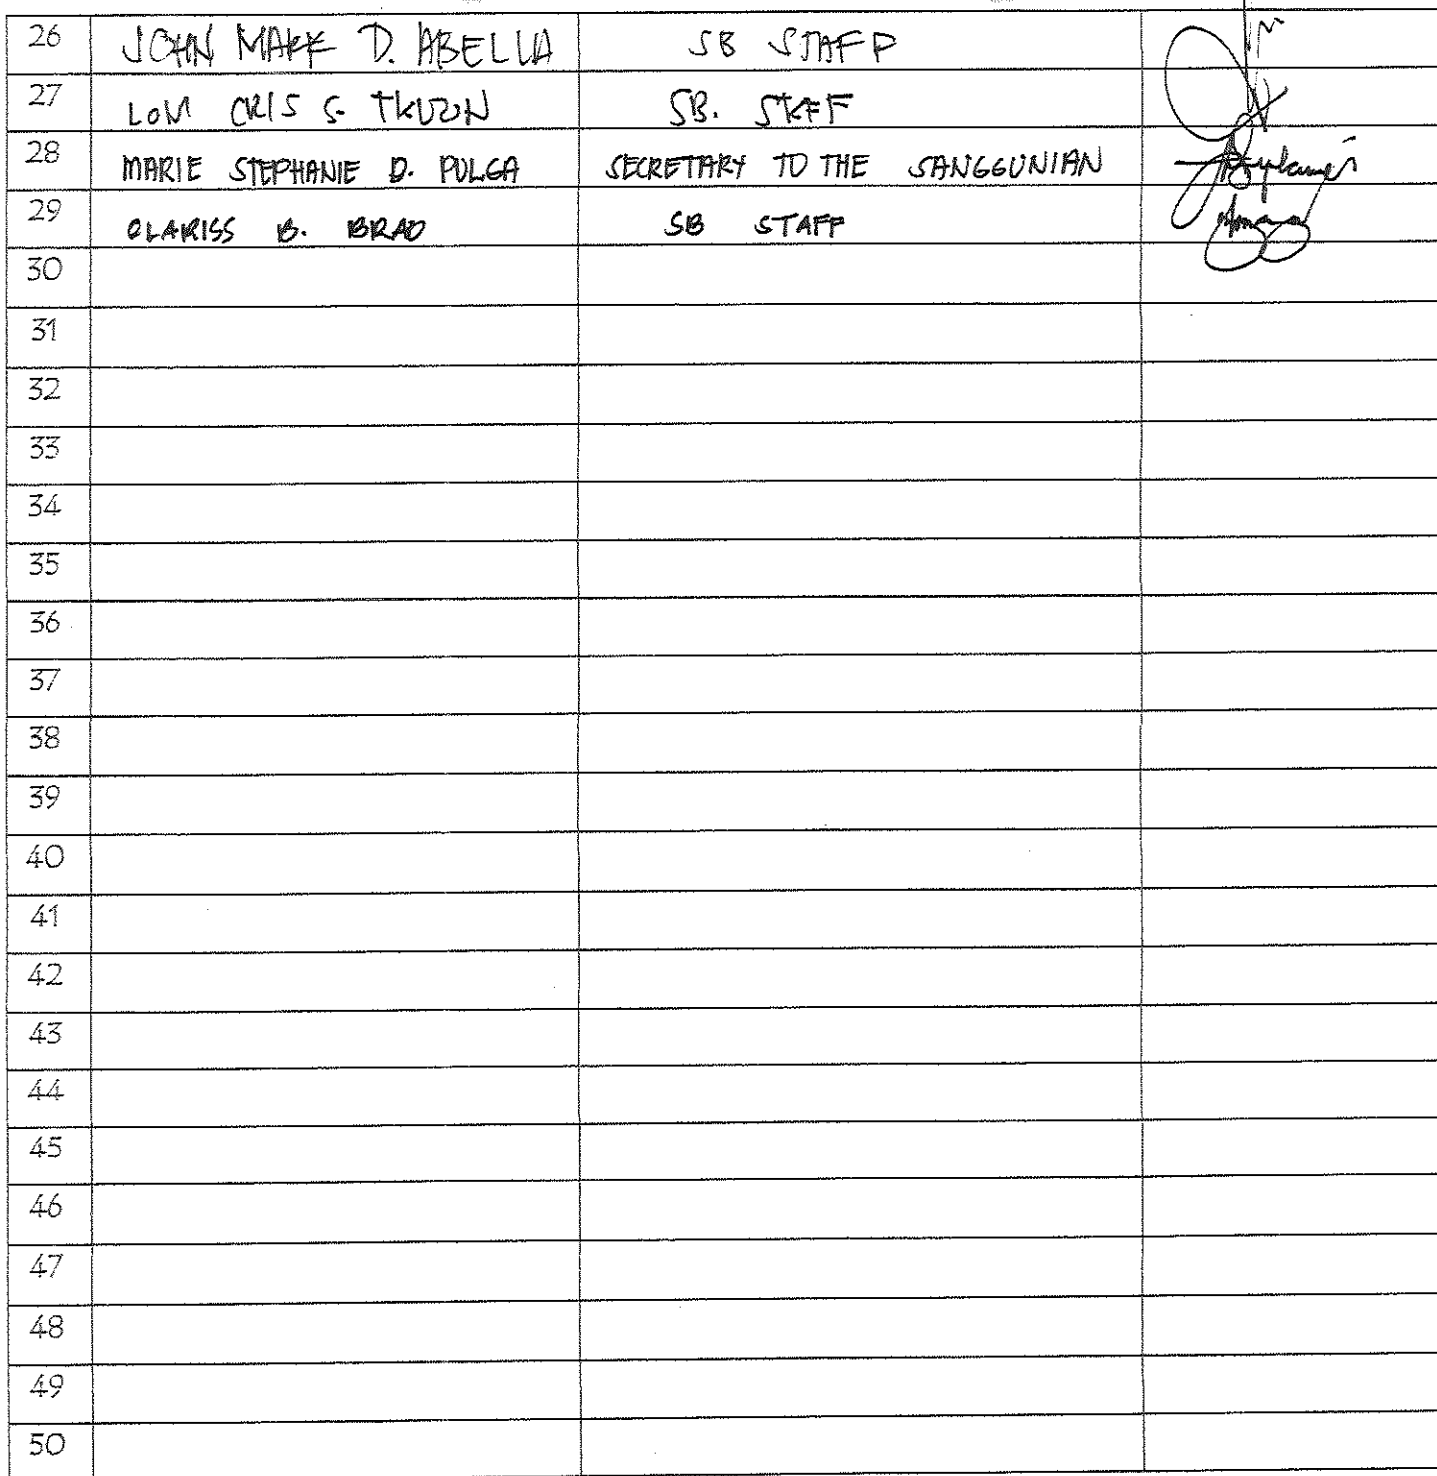 26 JOHN MARK D. ABELLA SB STAFF
27 CRIS S. SB. STAFF
28 MARIE STEPHANIE D. PULGA SECRETARY TO THE SANGGUNIAN
29 CLARISS B. BRAO SB STAFF
30
31
32
33
34
35
36
37
38
39
40
41
42
43
44
45
46
47
48
49
50